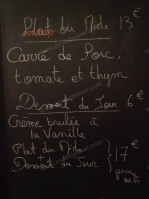 Plat du Midi 13€
Carré de Porc,
tomate et thym
Dessert du Jour 6€
Crème brulée à
la Vanille
Plat du Midi
+
Dessert du Jour
17€